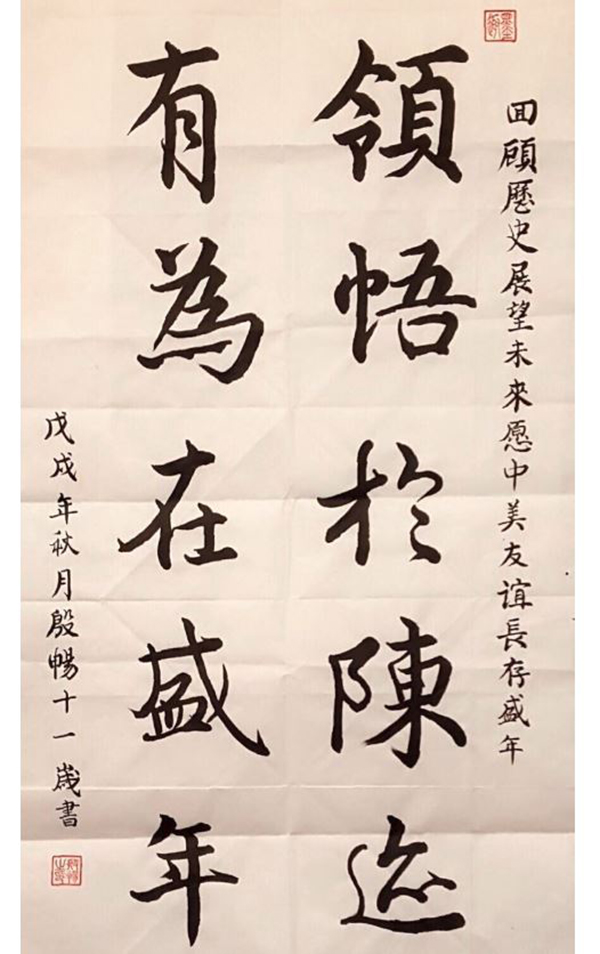 回顧歷史展望未來愿中美友誼長存盛年
領悟於陳迹
有為在盛年
戊戌年秋月殷暢十一歲書